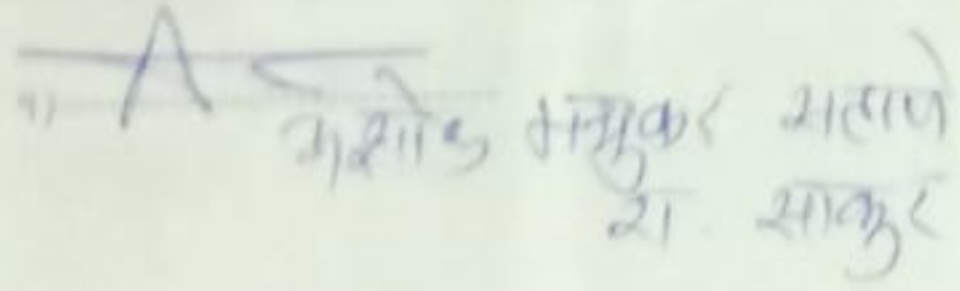 अशोक मधुकर महाणे
रा. साकुर